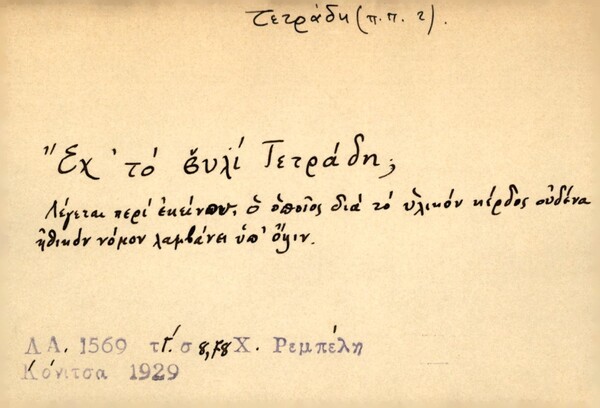 Τετράδη (π.π. τ).
"Έχ' τό βυλί Τετράδη;
Λέγεται περί ἐκείνου, ὁ ὁποῖος διά τό ὑλικόν κέρδος οὐδένα
ἠθικόν νόμον λαμβάνει ὑπ' ὄψιν.
ΛΑ. 1569 τΓ. σ 8, Χ. Ρεμπέλη
Κόνιτσα 1929